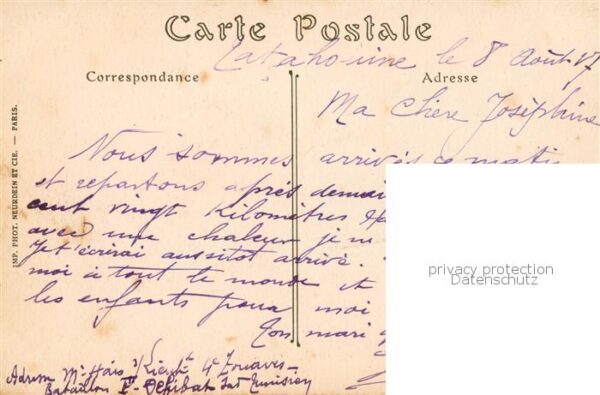 Carte Postale
Tatahouine le 8 Août 17
Correspondance
Adresse
Ma chère Joséphine
Nous sommes arrivés ce matin
et repartons après demain
cent vingt kilomètres
avec une chaleur je
Je t'écrirai aussitot arrivé.
moi à tout le monde et
les enfants pour moi
Ton mari
Adresse Mr 4e Zouaves
Bataillon Dehibat Sud Tunisien
IMP. PHOT. NEURDEIN ET CIE. — PARIS.
privacy protection
Datenschutz